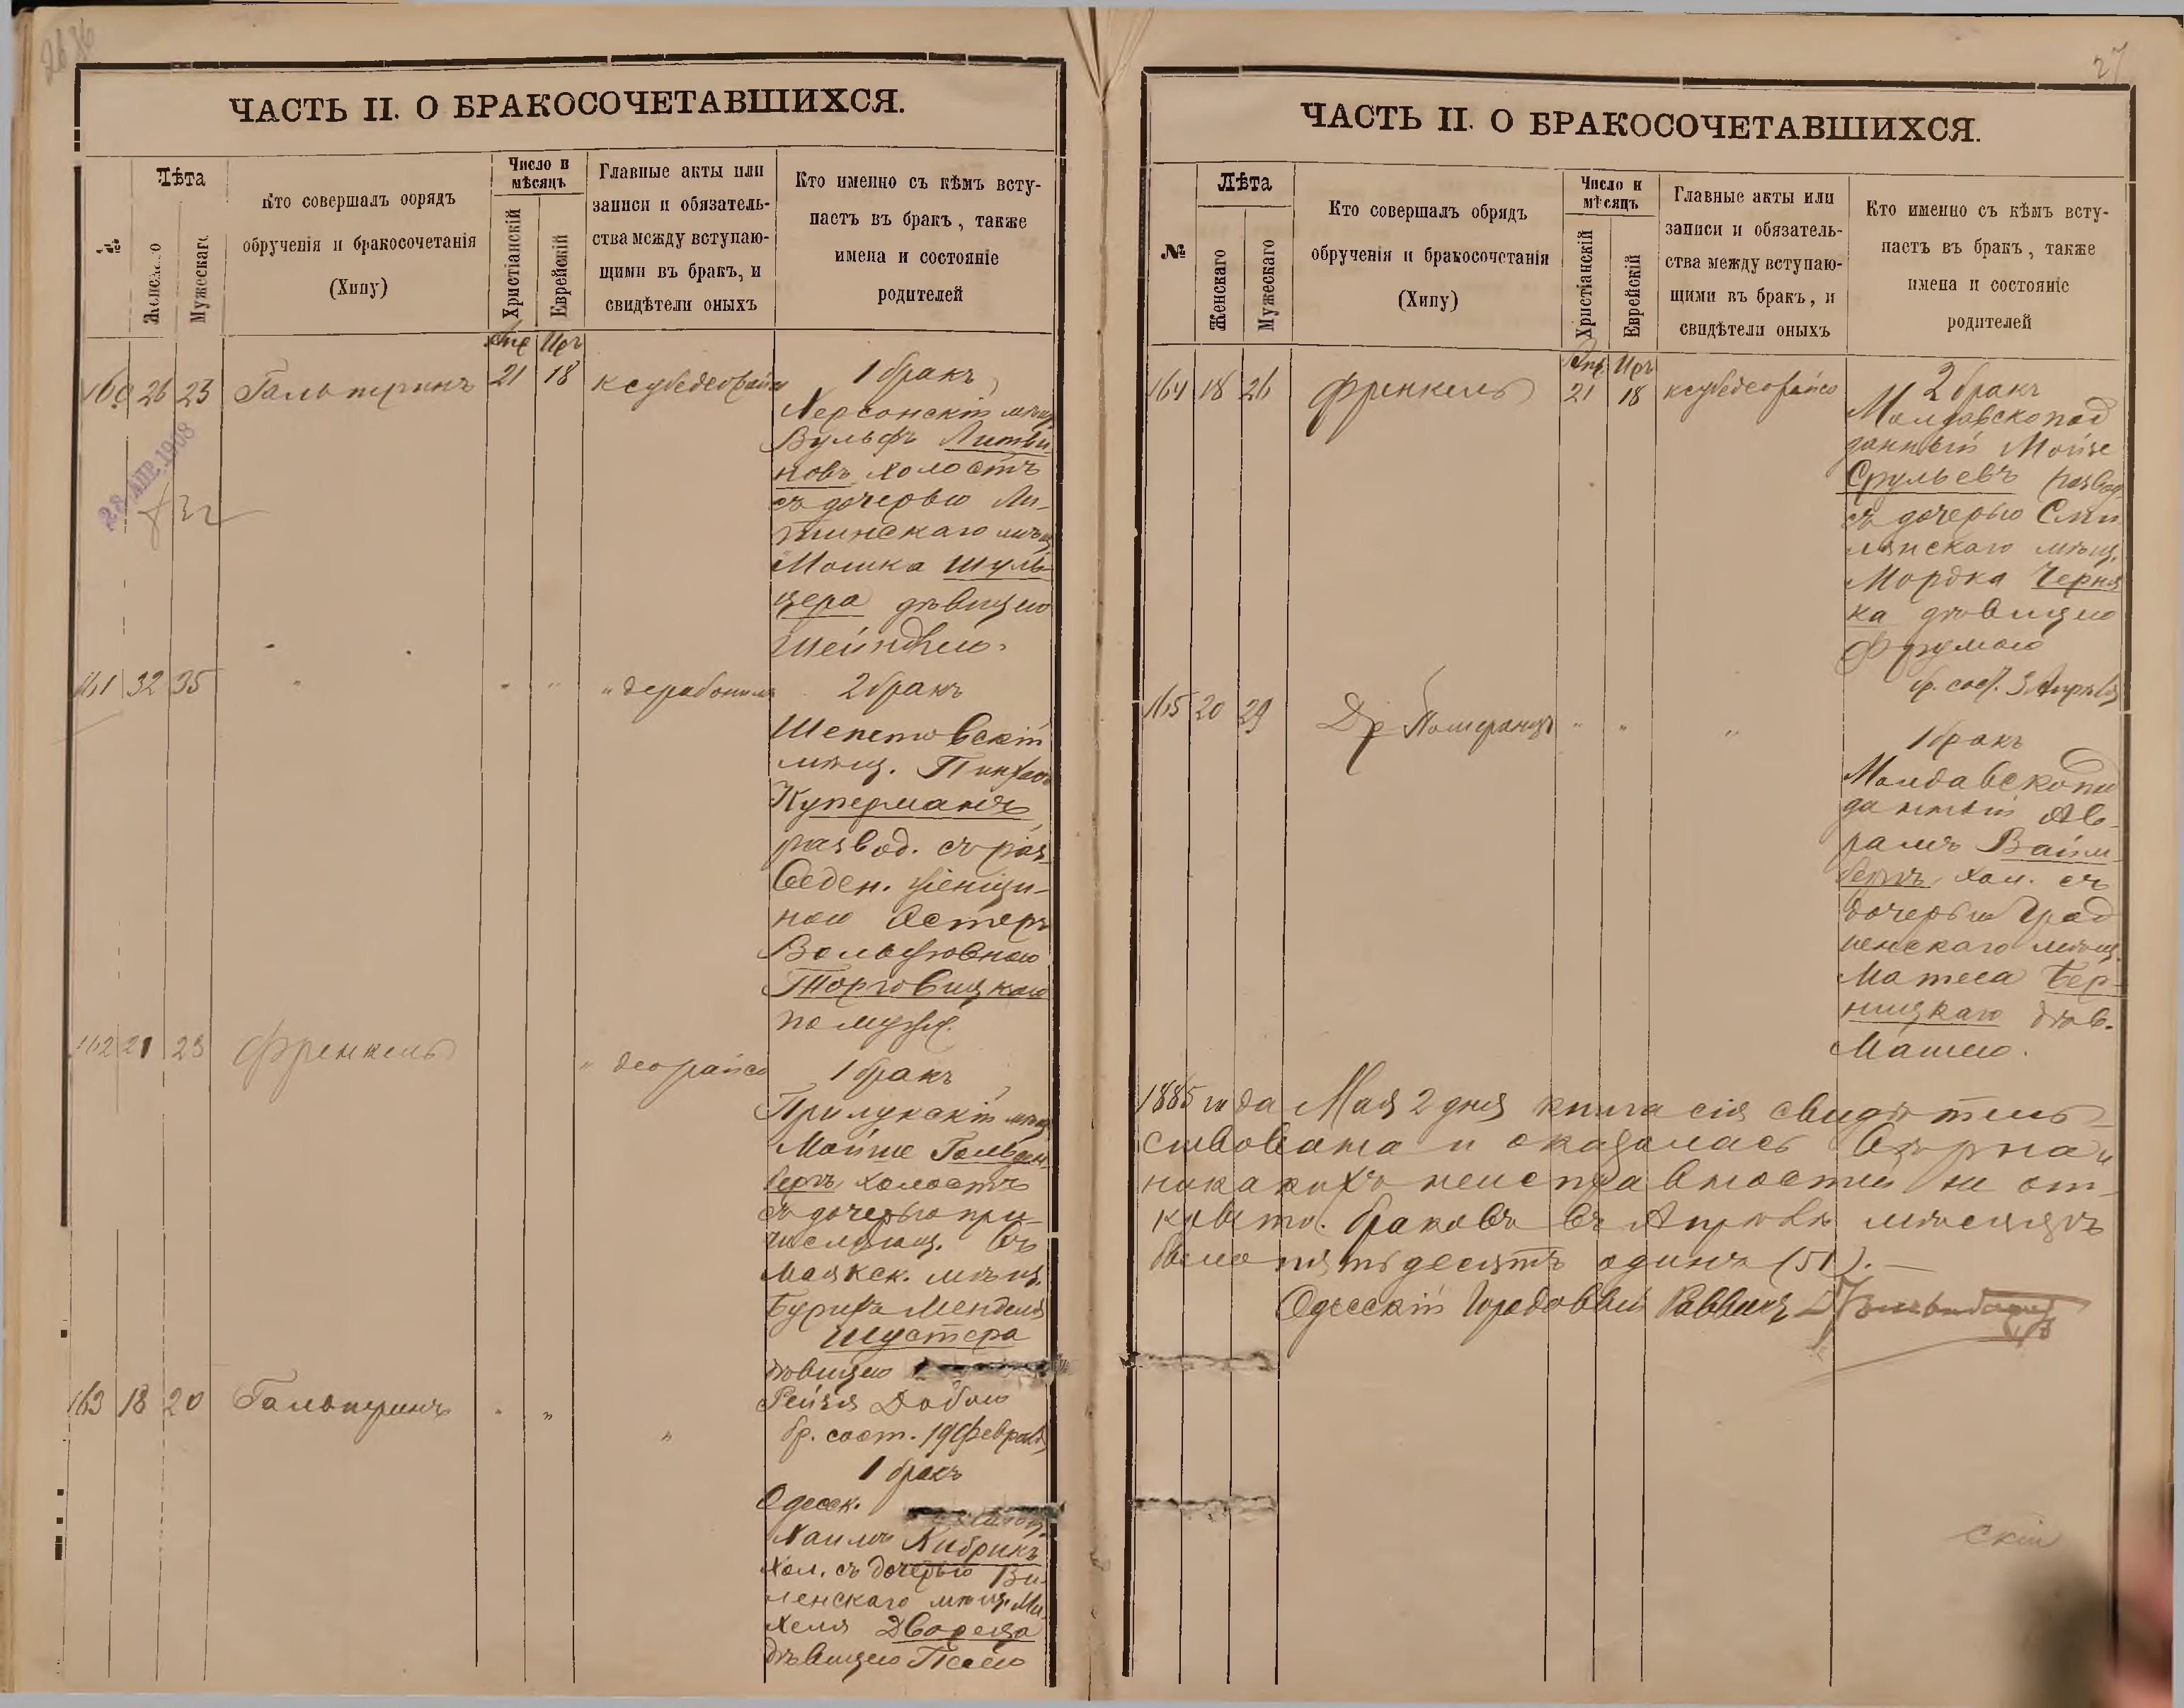 ЧАСТЬ II. О БРАКОСОЧЕТАВШИХСЯ.
№
Лѣта
Женскаго
Мужескаго
Кто совершалъ обрядъ
обрученія и бракосочетанія
(Хипу)
Число и
мѣсяцъ
Христіанскій
Еврейскій
Главные акты или
записи и обязатель-
ства между вступаю-
щими въ бракъ, и
свидѣтели оныхъ
Кто именно съ кѣмъ всту-
паетъ въ бракъ, также
имена и состояніе
родителей
Апр Иръ
160 26 23 Гальперинъ 21 18
28 АПР. 1908
1 бракъ
Херсонскій мѣщ.
Вульфъ Литви-
новъ холостъ
съ дочерью Ли-
тинскаго мѣщ.
Мошка Шуль-
цера дѣвицею
Шейндлею.
161 32 35 " " " "
2 бракъ
Шепетовскій
мѣщ. Пинхасъ
Куперманъ
развод. съ раз-
веден. женщи-
ною Эстеръ
Вольфовною
Торговицкою
по мужу.
162 21 23 Френкель " деорайсо
1 бракъ
Прилукскій мѣщ.
Мойше Гольден-
бергъ холостъ
съ дочерью при-
числящ. въ
Маякск. мѣщ.
Буриха Менделя
Шустера
дѣвицею
Рейзя Добою
бр. сост. 19 Февраля
163 18 20 Гальперинъ " " "
1 бракъ
Одесск.
Хаимъ Кибрикъ
хол. съ дочерью Ви-
ленскаго мѣщ. Ми-
хеля Двореца
дѣвицею Песею
27
ЧАСТЬ II. О БРАКОСОЧЕТАВШИХСЯ.
№
Лѣта
Женскаго
Мужескаго
Кто совершалъ обрядъ
обрученія и бракосочетанія
(Хипу)
Число и
мѣсяцъ
Христіанскій
Еврейскій
Главные акты или
записи и обязатель-
ства между вступаю-
щими въ бракъ, и
свидѣтели оныхъ
Кто именно съ кѣмъ всту-
паетъ въ бракъ, также
имена и состояніе
родителей
Апр Иръ
164 18 26 Френкель 21 18
2 бракъ
Молдавскопод
данный Мойше
Срульевъ развод.
съ дочерью Сми-
лянскаго мѣщ.
Мордка Черня
ка дѣвицею
Фрумою
бр. сост. 3 Апрѣля
165 20 29 Др Померанцъ " " "
1 бракъ
Молдавскопод
данный Ав-
рамъ Вайн-
бергъ хол. съ
дочерью Грод
ненскаго мѣщ.
Матеса Бер-
ницкаго дѣв.
Машею.
1885 года Мая 2 дня книга сія свидѣтель-
ствована и оказалась вѣрна и
никакихъ неисправностей не от-
крыто. браковъ въ Апрѣлѣ мѣсяцѣ
было пятьдесятъ одинъ (51).
Одесскій Городовой Раввинъ
скій